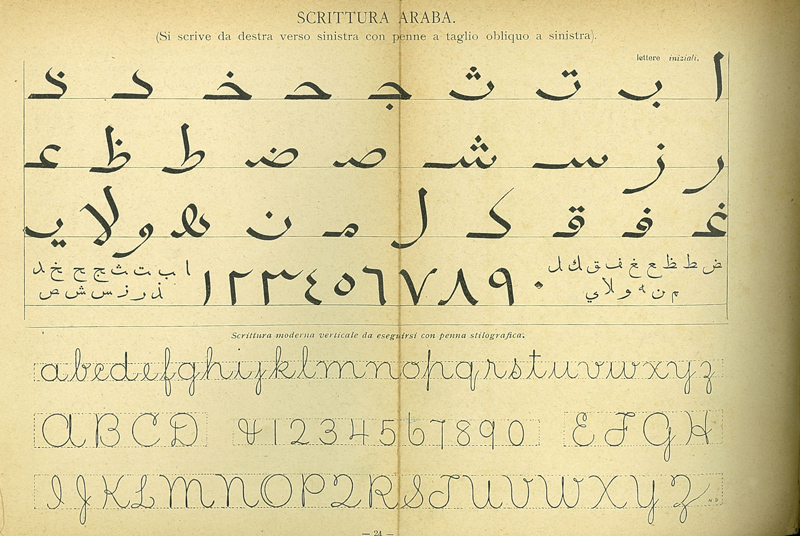 SCRITTURA ARABA.
(Si scrive da destra verso sinistra con penne a taglio obliquo a sinistra).
lettere iniziali.
ا ب ت ث ج ح خ د ذ
ر ز س ش ص ض ط ظ ع
غ ف ق ك ل م ن ه و لا ي
ض ط ظ ع غ ف ق ك ل
م ن ه و لا ي
١ ٢ ٣ ٤ ٥ ٦ ٧ ٨ ٩ ٠
ا ب ت ث ج ح خ د
ذ ر ز س ش ص
Scrittura moderna verticale da eseguirsi con penna stilografica.
a b c d e f g h i j k l m n o p q r s t u v w x y z
A B C D & 1 2 3 4 5 6 7 8 9 0 E F G H
I J K L M N O P Q R S T U V W X Y Z
— 24 —